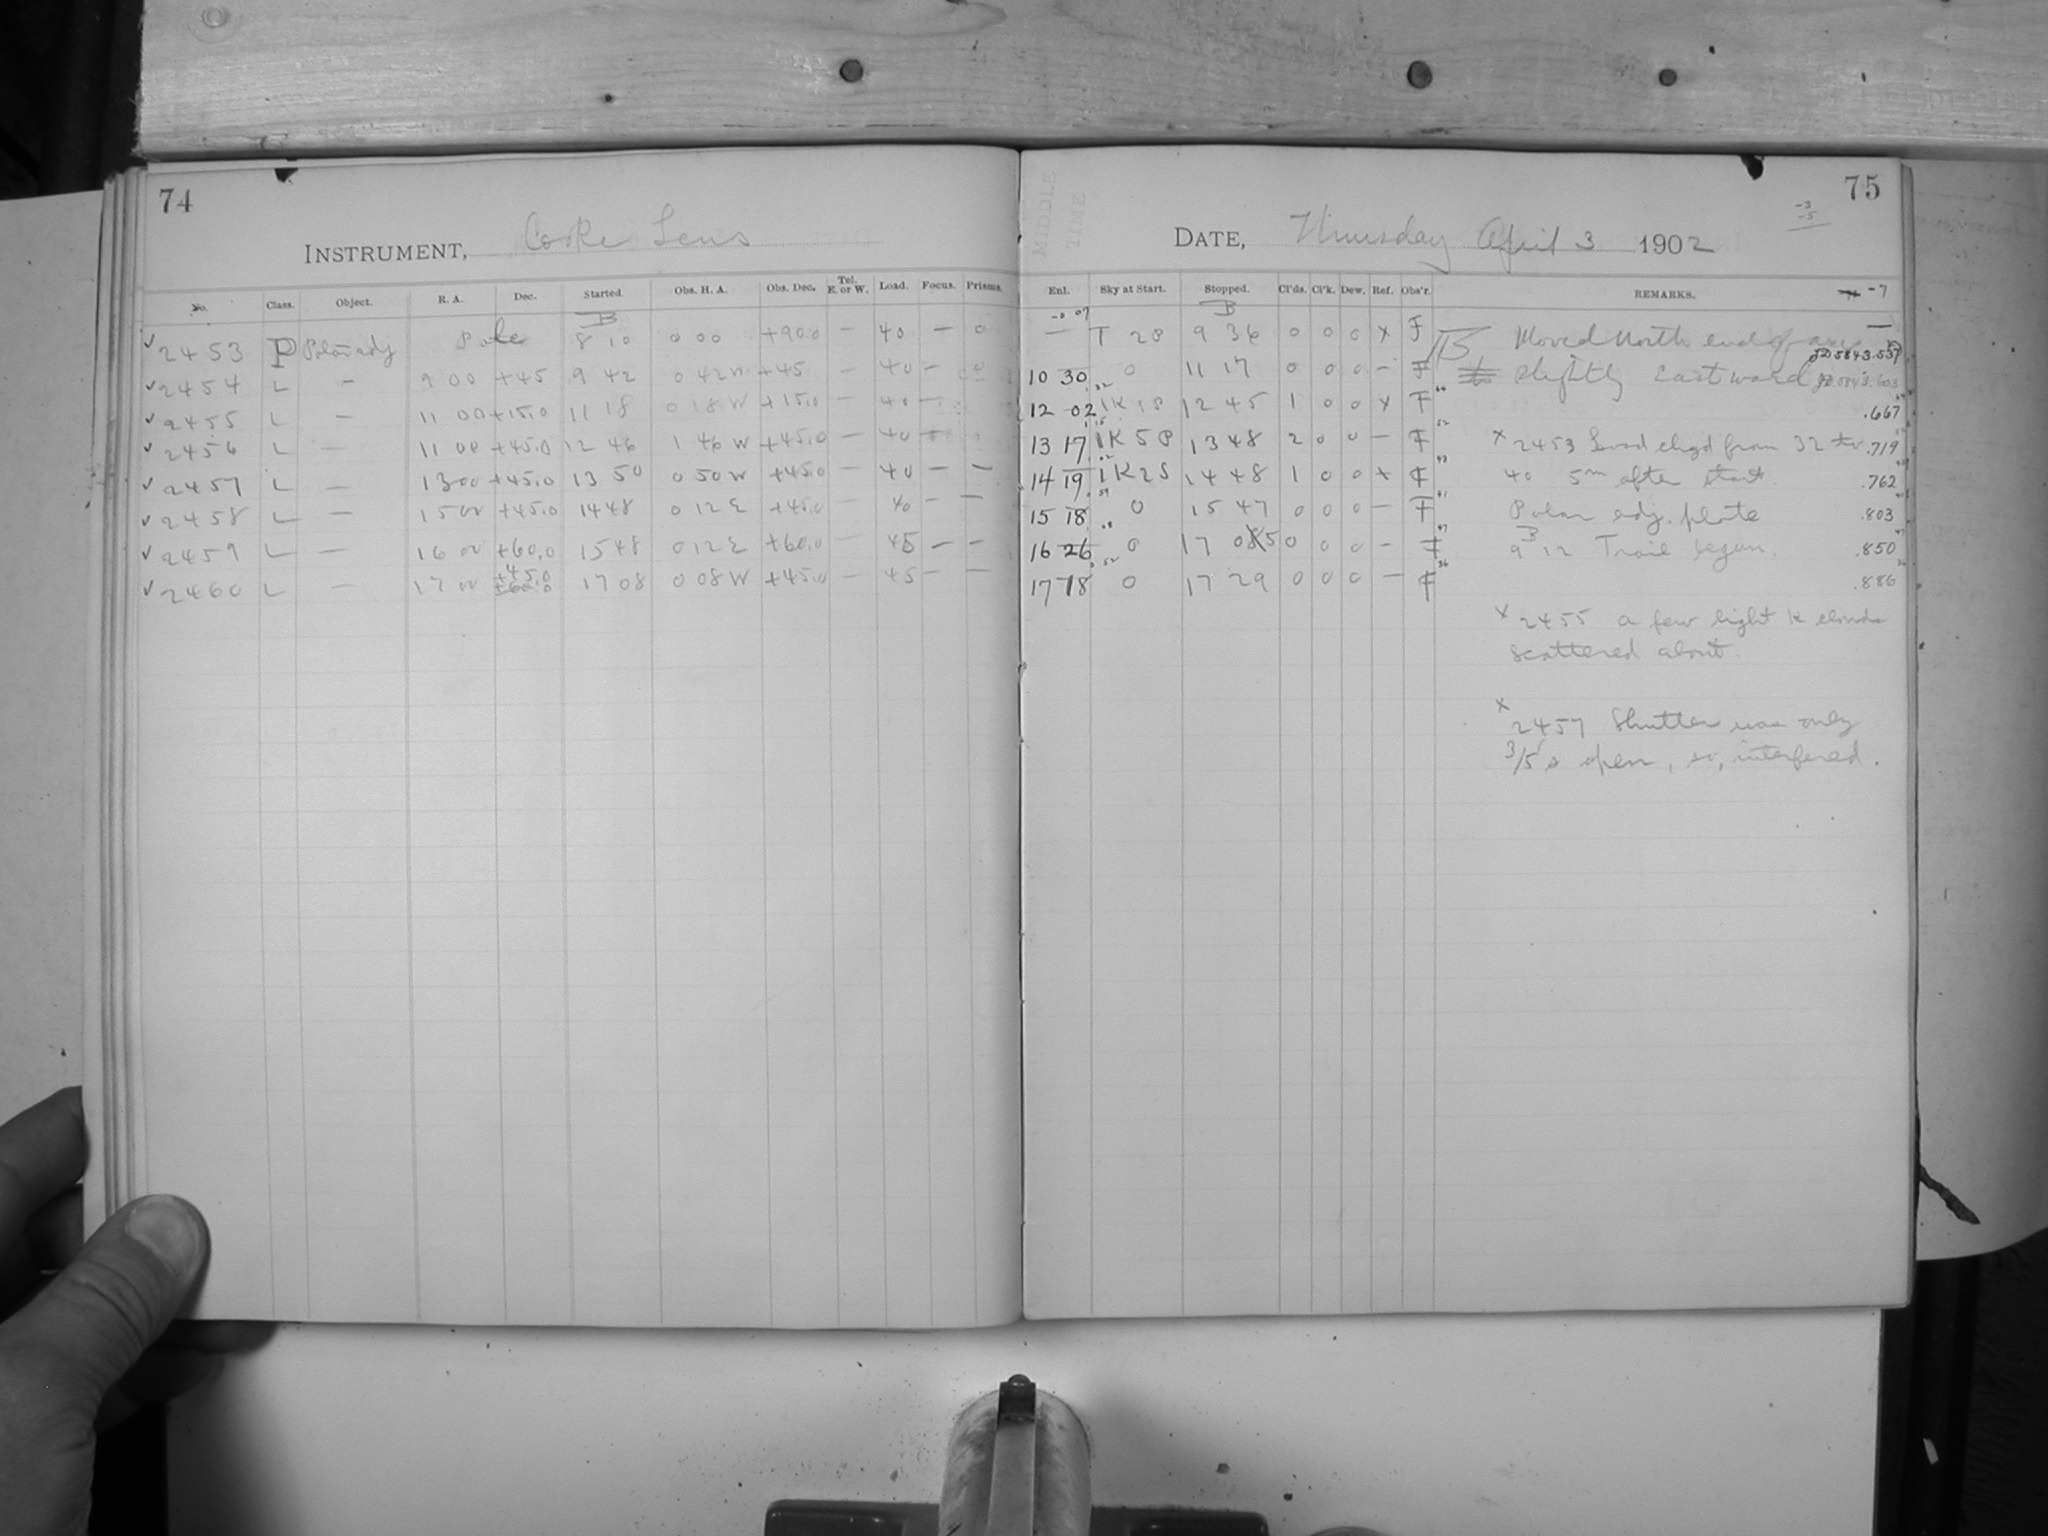 74
INSTRUMENT, Cooke Lens
No. Class. Object. R. A. Dec. Started. Obs. H. A. Obs. Dec. Tel. E. or W. Load. Focus. Prisms.
B
✓ 2453 P Polar adj Pole 8 10 0 00 +90.0 — 40 — 0
✓ 2454 L — 9 00 +45 9 42 0 42 W +45 — 40 — 0
✓ 2455 L — 11 00 +15.0 11 18 0 18 W +15.0 — 40 —
✓ 2456 L — 11 00 +45.0 12 46 1 46 W +45.0 — 40 —
✓ 2457 L — 13 00 +45.0 13 50 0 50 W +45.0 — 40 — —
✓ 2458 L — 15 00 +45.0 14 48 0 12 E +45.0 — 40 — —
✓ 2459 L — 16 00 +60.0 15 48 0 12 E +60.0 — 45 — —
✓ 2460 L — 17 00 +45.0 17 08 0 08 W +45.0 — 45 — —
75
MIDDLE TIME
-3
-5
DATE, Thursday April 3 1902
Enl. Sky at Start. Stopped. Cl'ds. Cl'k. Dew. Ref. Obs'r. REMARKS. -7
B
— 9 36 0 0 0 x F
10 30 0 11 17 0 0 0 — F
12 02 1K1S 12 45 1 0 0 x F .667
13 17 1K5P 13 48 2 0 0 — F .719
14 19 1K2S 14 48 1 0 0 x F .762
15 18 0 15 47 0 0 0 — F .803
16 26 0 17 08 0 0 0 — F .850
17 18 0 17 29 0 0 0 — F .886
Moved North end of
slightly Eastward
x 2453 Load chgd from 32 to
40 5m after start.
Polar adj. plate
9 12 Trail begun.
x 2455 a few light K clouds
scattered about.
x 2457 Shutter was only
3/5's open, so, interfered.